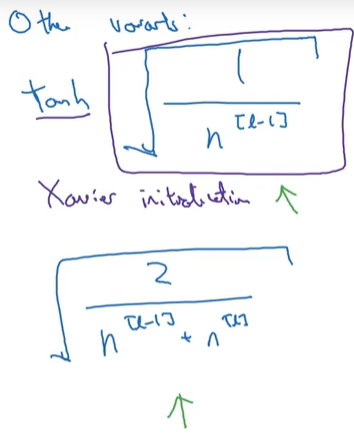 Other variants:
tanh √(1 / n^[l-1])
Xavier initialization ↑
√(2 / (n^[l-1] + n^[l]))
↑